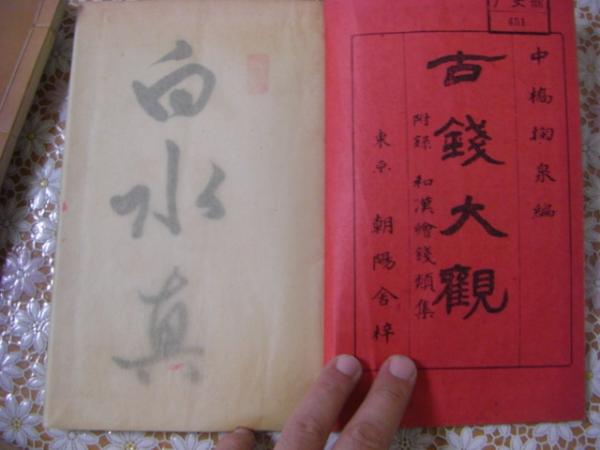 中橋掬泉編
古錢大觀
附録 和漢繪錢類集
東京 朝陽舍梓
651
白水真